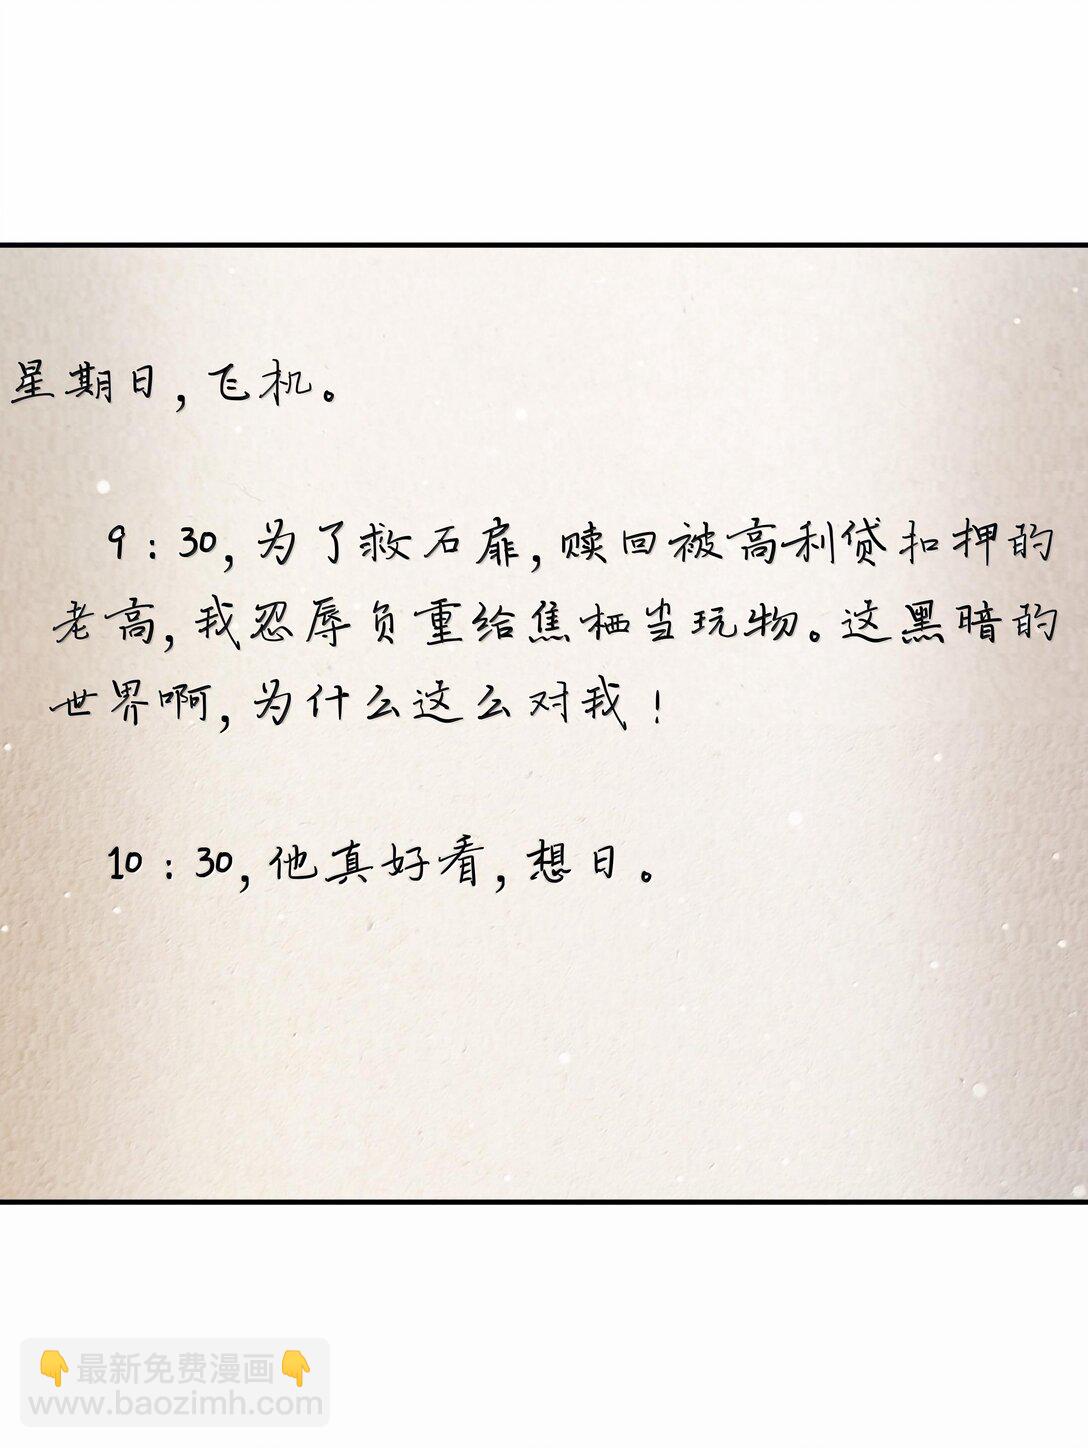 星期日，飞机。
9：30，为了救石扉，赎回被高利贷扣押的
老高，我忍辱负重给焦栖当玩物。这黑暗的
世界啊，为什么这么对我！
10：30，他真好看，想日。
👇最新免费漫画👇
www.baozimh.com